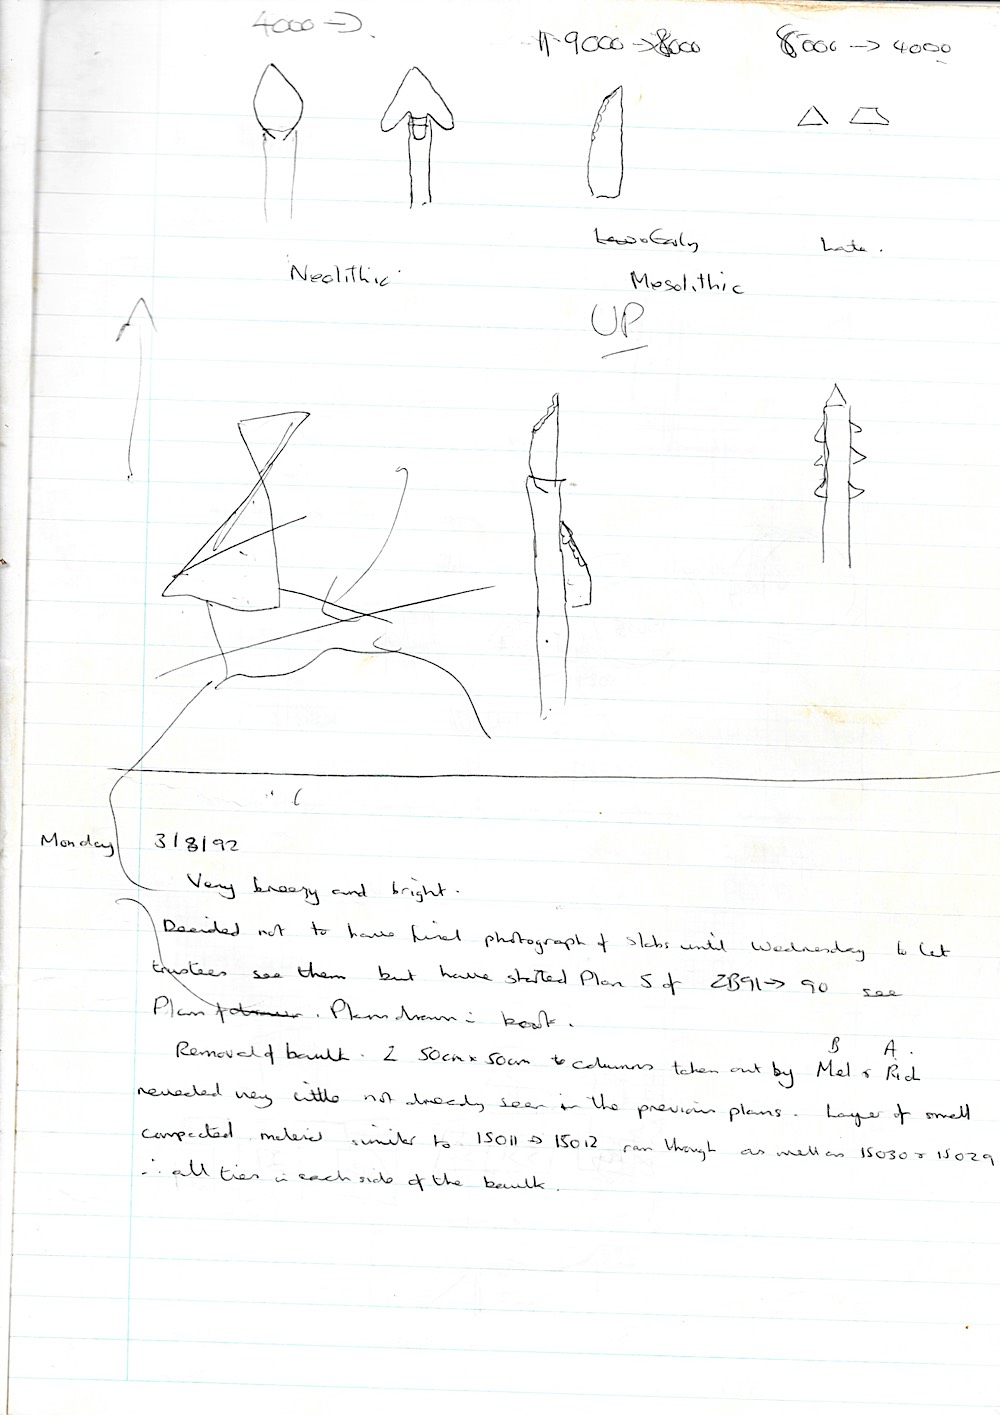 4000 →
9000 → 8000
8000 → 4000
Early
Late.
Neolithic
Mesolithic
UP
Monday 3/8/92
Very breezy and bright.
Decided not to have final photograph of slabs until Wednesday to let
trustees see them but have started Plan 5 of ZB91 → 90 see
Plan. Plan drawn in book.
B A.
Removal of baulk. 2 50cm x 50cm columns taken out by Mel & Rich
revealed very little not already seen in the previous plans. Layer of small
compacted material similar to 15011 → 15012 ran though as well as 15030 & 15029
∴ all ties in each side of the baulk.